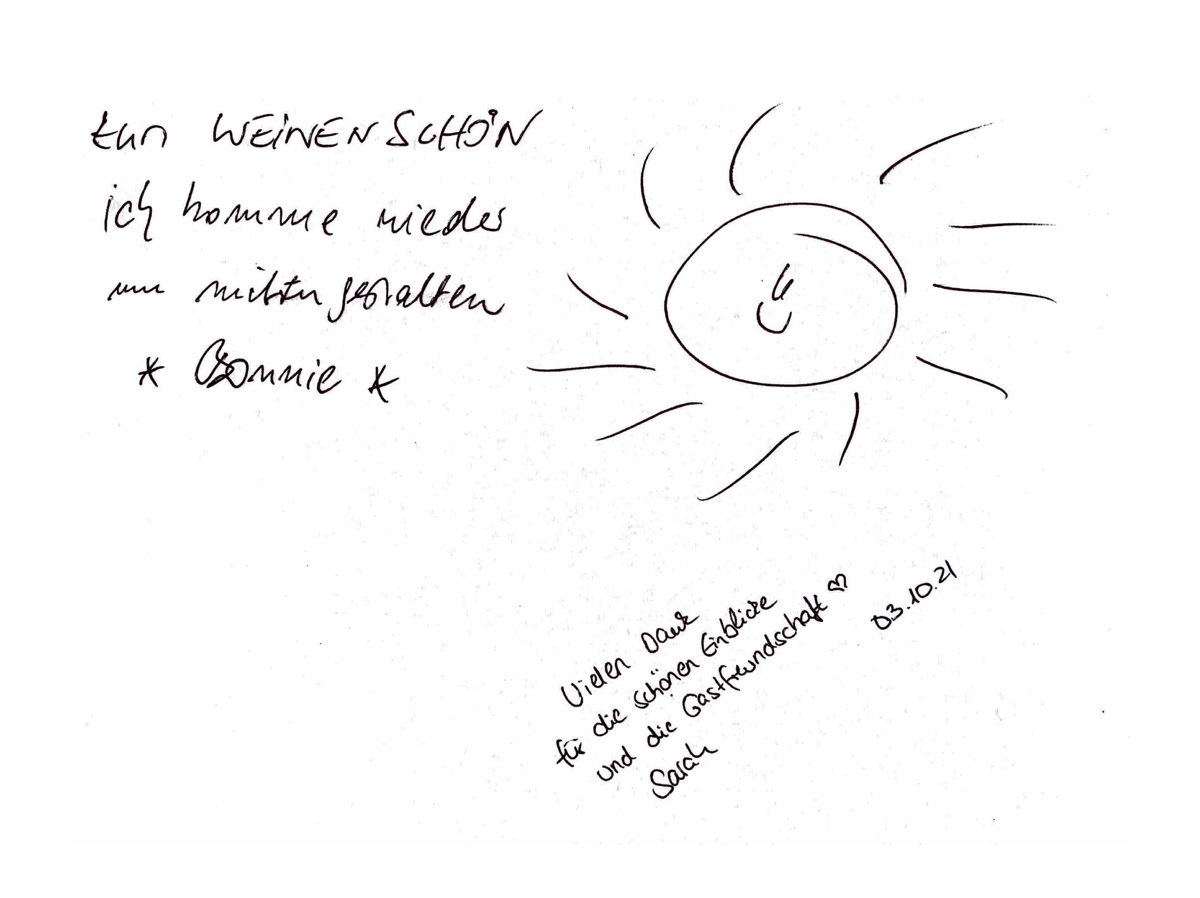 zum WEINEN SCHÖN
ich komme wieder
um mitzugestalten
* Bonnie *
Vielen Dank
für die schönen Einblicke
und die Gastfreundschaft ♡
Sarah
03.10.21